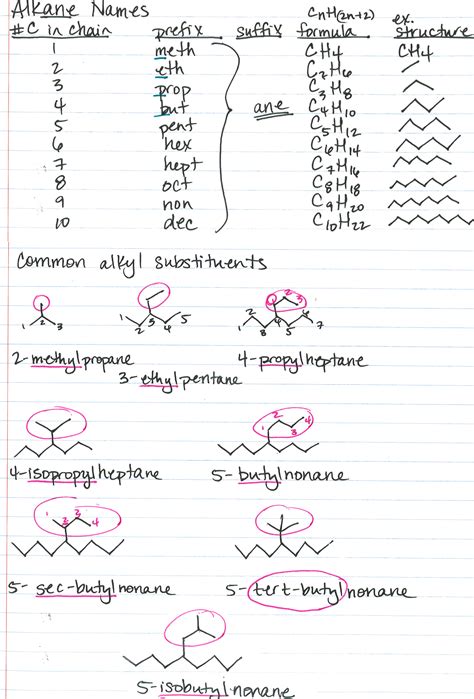 Alkane Names
CnH(2n+2) ex.
#C in chain prefix suffix formula structure
1 meth CH4 CH4
2 eth C2H6
3 prop C3H8
4 but ane C4H10
5 pent C5H12
6 hex C6H14
7 hept C7H16
8 oct C8H18
9 non C9H20
10 dec C10H22
Common alkyl substituents
1 2 3
1 2 3 4 5
1 2 3 4 5 6 7
2-methylpropane 4-propylheptane
3-ethylpentane
1 2 3 4
4-isopropylheptane 5-butylnonane
1 2 3 4
5-sec-butylnonane 5-tert-butylnonane
5-isobutylnonane